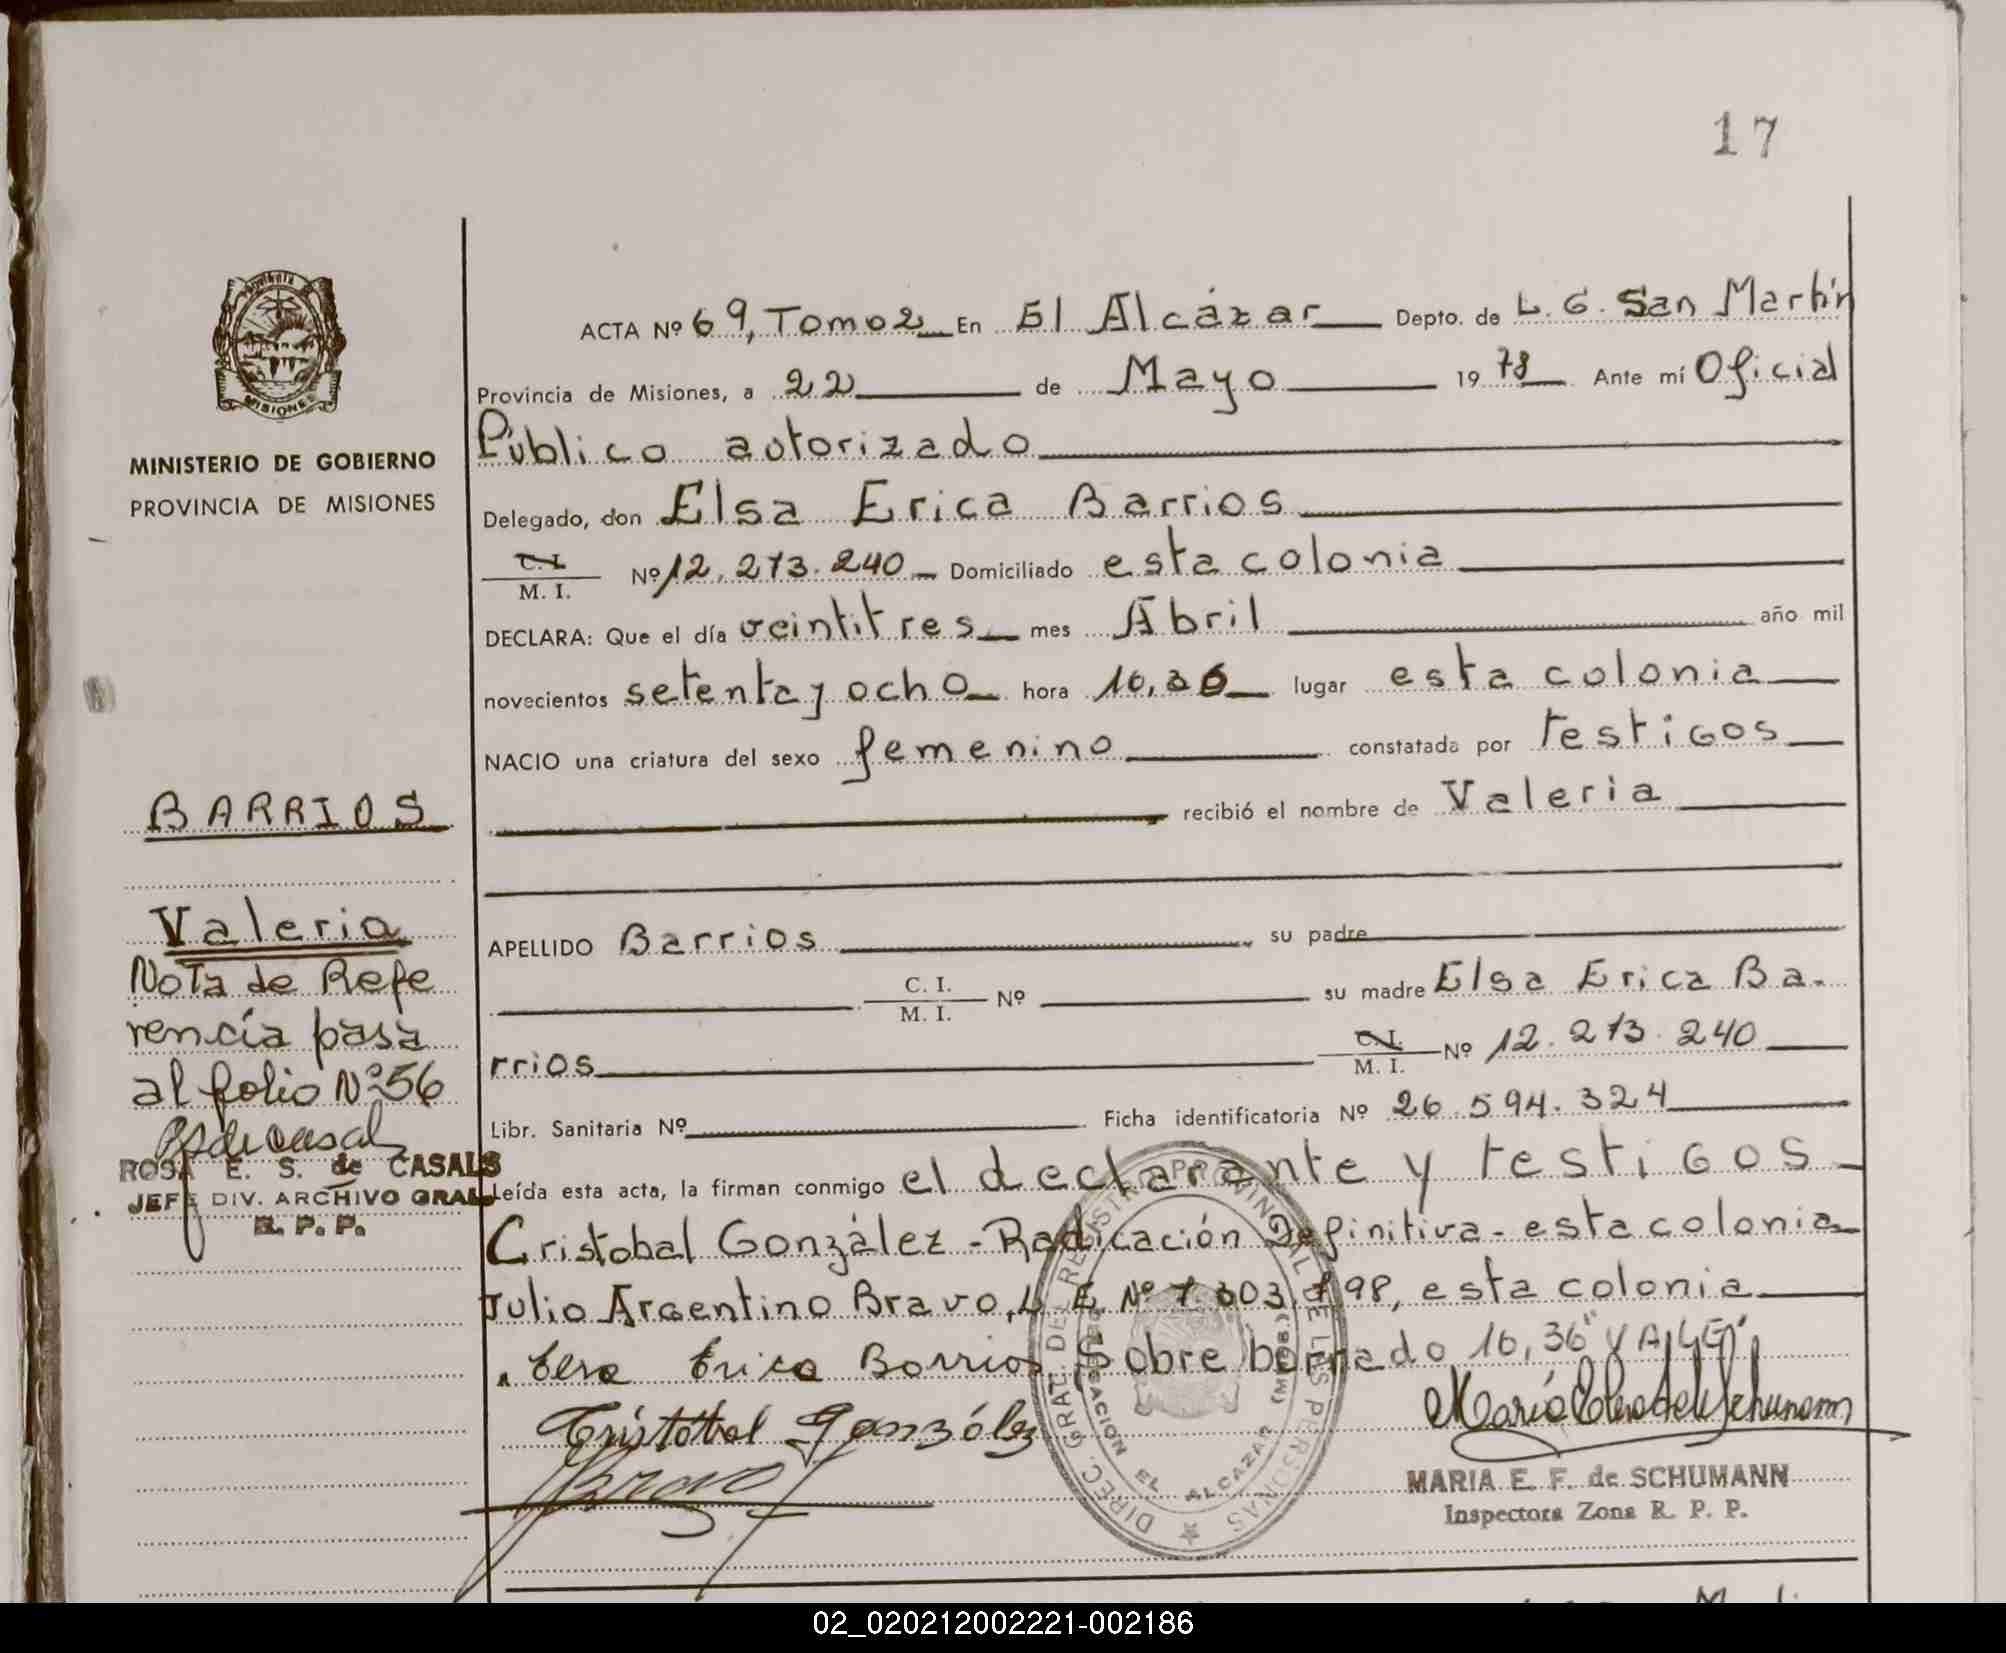 17
MISIONES
MINISTERIO DE GOBIERNO
PROVINCIA DE MISIONES
BARRIOS
Valeria
Nota de Refe
rencia pasa
al folio Nº 56
ROSA E. S. de CASALS
JEFE DIV. ARCHIVO GRAL.
R. P. P.
ACTA Nº 69, Tomo 2 En El Alcázar Depto. de L. G. San Martín
Provincia de Misiones, a 22 de Mayo 1978 Ante mí Oficial
Público autorizado
Delegado, don Elsa Erica Barrios
C. I.
M. I. Nº 12.273.240 Domiciliado esta colonia
DECLARA: Que el día veintitres mes Abril año mil
novecientos setenta y ocho hora 10,36 lugar esta colonia
NACIO una criatura del sexo femenino constatada por testigos
recibió el nombre de Valeria
APELLIDO Barrios su padre
C. I.
M. I. Nº su madre Elsa Erica Ba-
rrios C. I.
M. I. Nº 12.273.240
Libr. Sanitaria Nº Ficha identificatoria Nº 26.594.324
Leída esta acta, la firman conmigo el declarante y testigos
Cristobal González - Radicación Definitiva - esta colonia
Julio Argentino Bravo, L. E. Nº 7.303.998, esta colonia
Elsa Erica Barrios Sobre borrado 10,36" VALE".
Cristóbal González
Bravo
DIREC. GRAL. DEL REGISTRO PROVINCIAL DE LAS PERSONAS
DELEGACION EL ALCAZAR (MNES.)
MARIA E. F. de SCHUMANN
Inspectora Zona R. P. P.
02_020212002221-002186